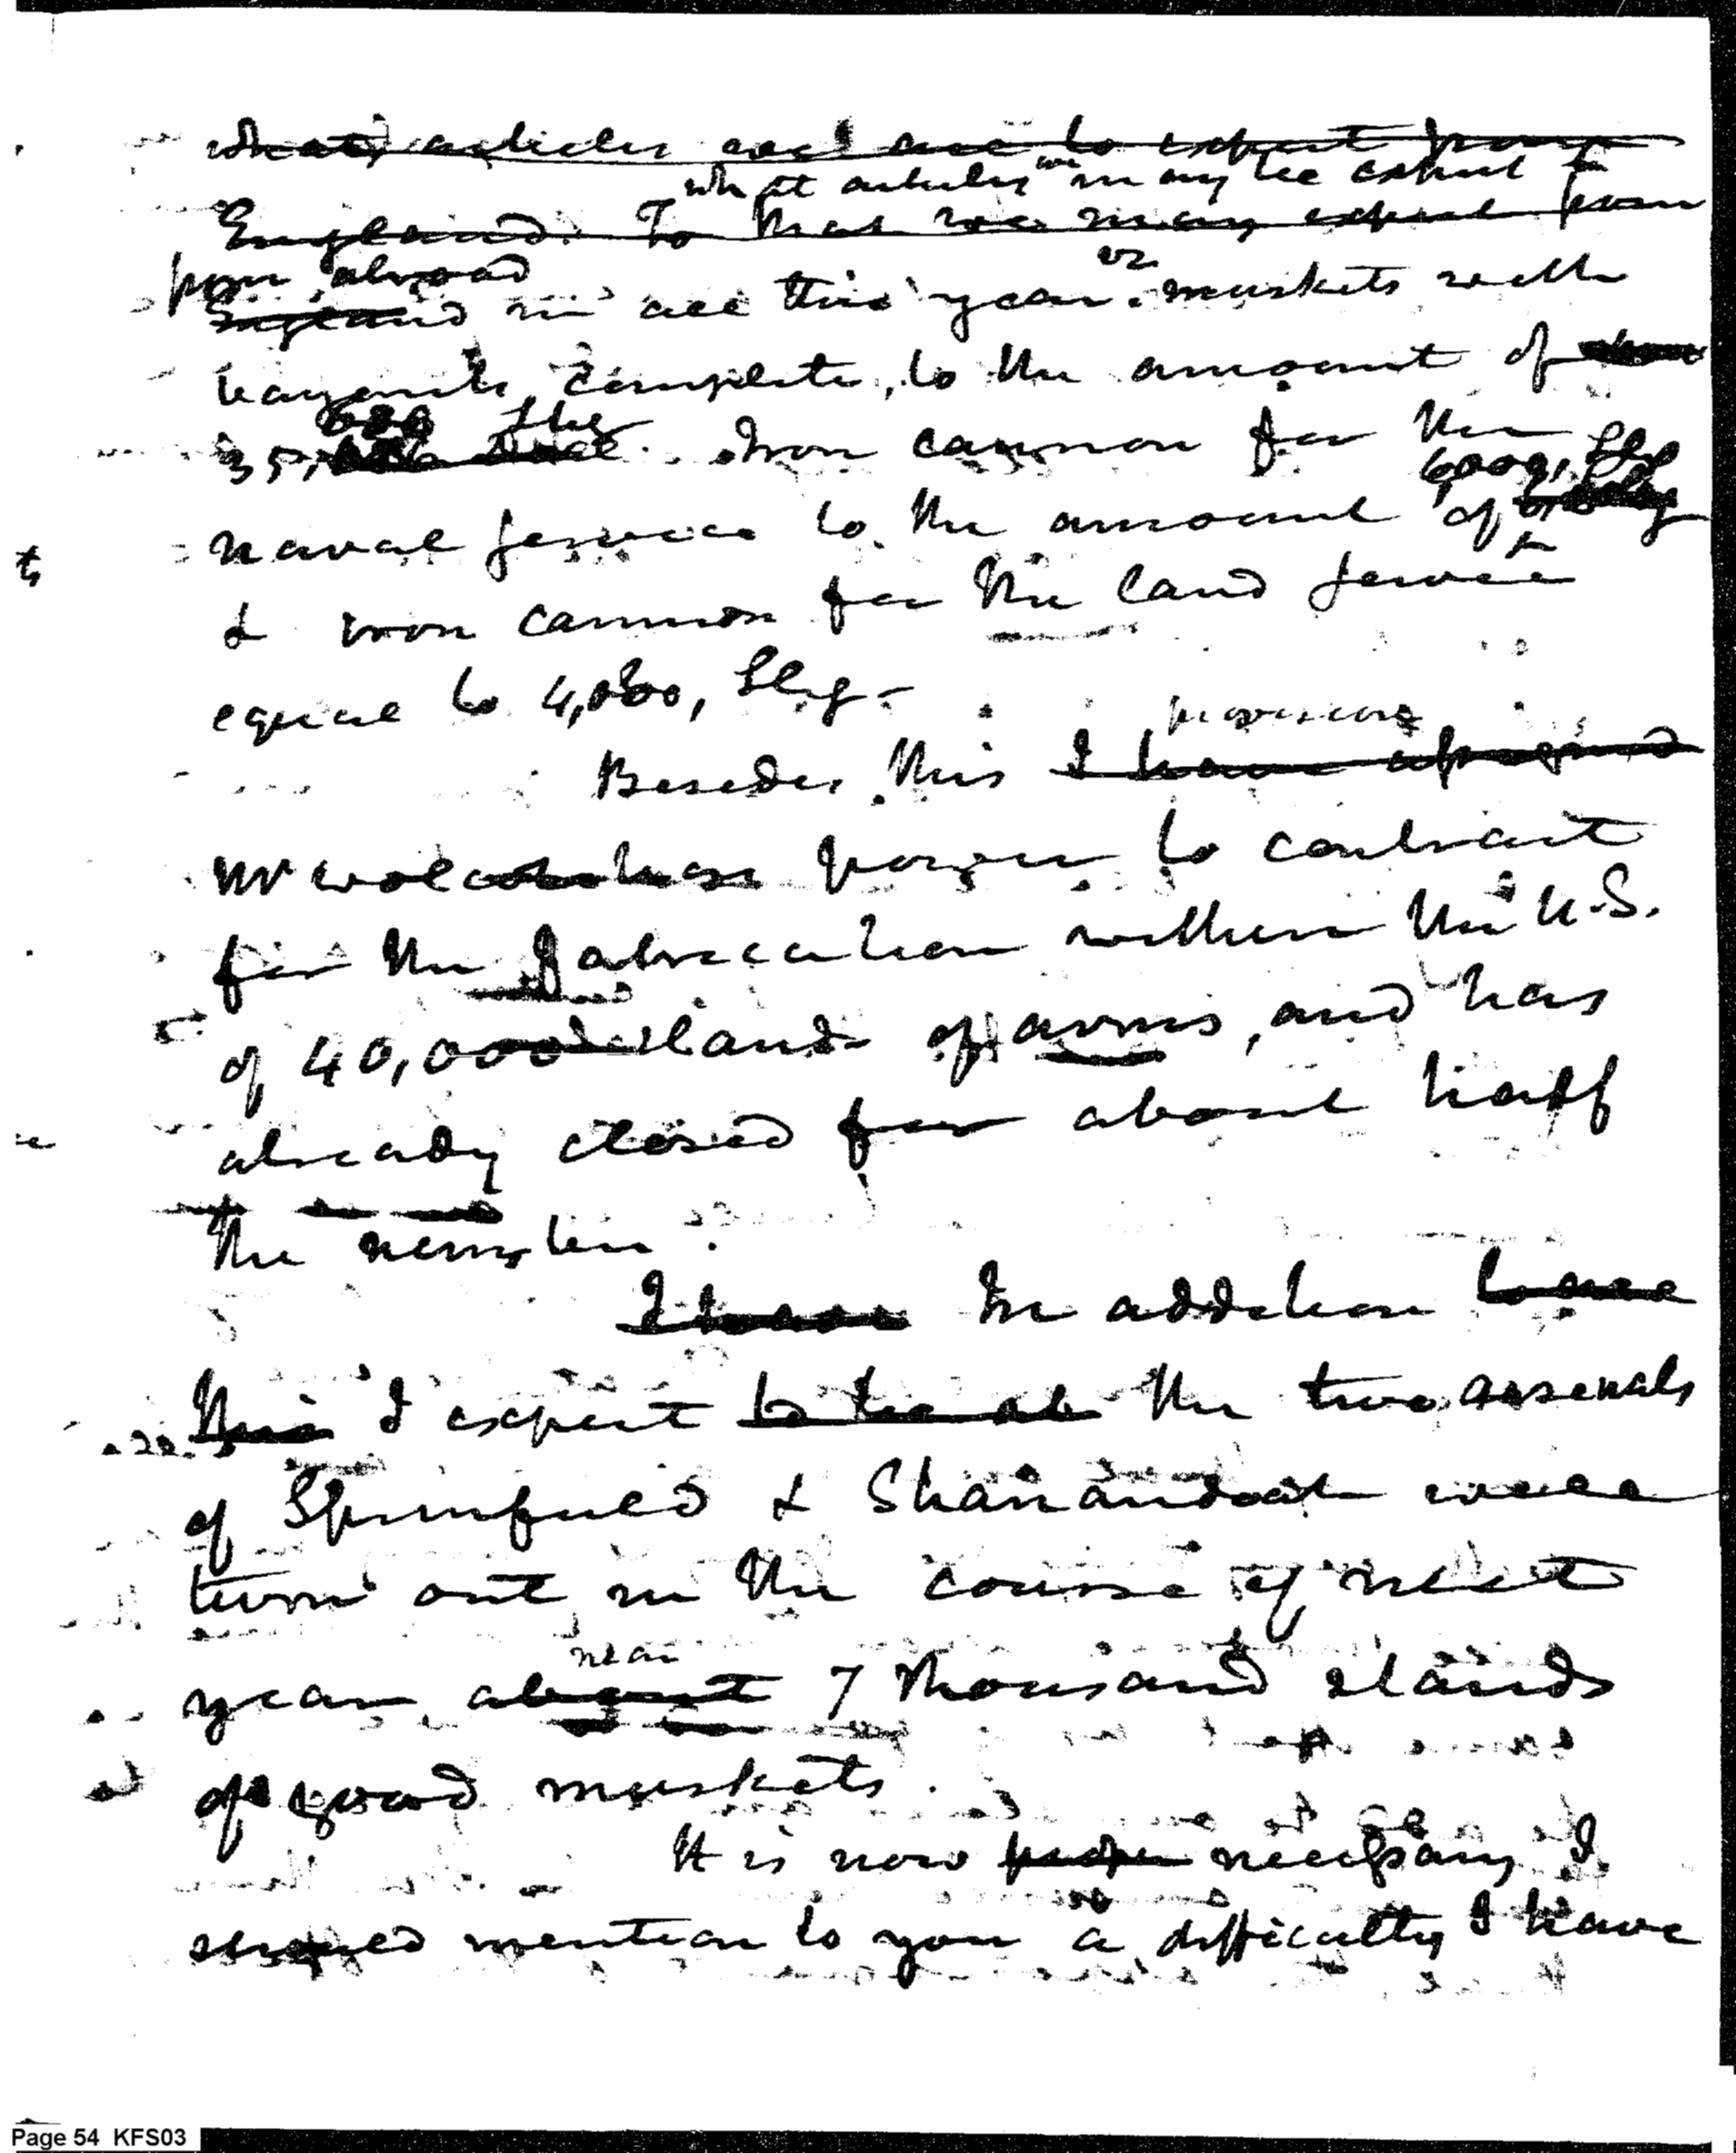 what articles we are to expect from
what articles we may be expect
England. To that we may expect from
from abroad
England in all this year. vz muskets with
bayonets complete, to the amount of
35,000 Stlg. Iron cannon for the
naval service to the amount of 6,000, Stlg
& iron cannon for the land service
equal to 4,000, Stlg.
provisions
Besides this I have
Mr Wolcott has power to contract
for the fabrication within the U.S.
of 40,000 stands of arms, and has
already closed for about half
the number.
I have In addition to all
this I expect to be at the two arsenals
of Springfield & Shanandoah will
turn out in the course of next
near
year about 7 thousand stands
of good muskets.
It is now proper necessary I
should mention to you a difficulty I have
Page 54 KFS03